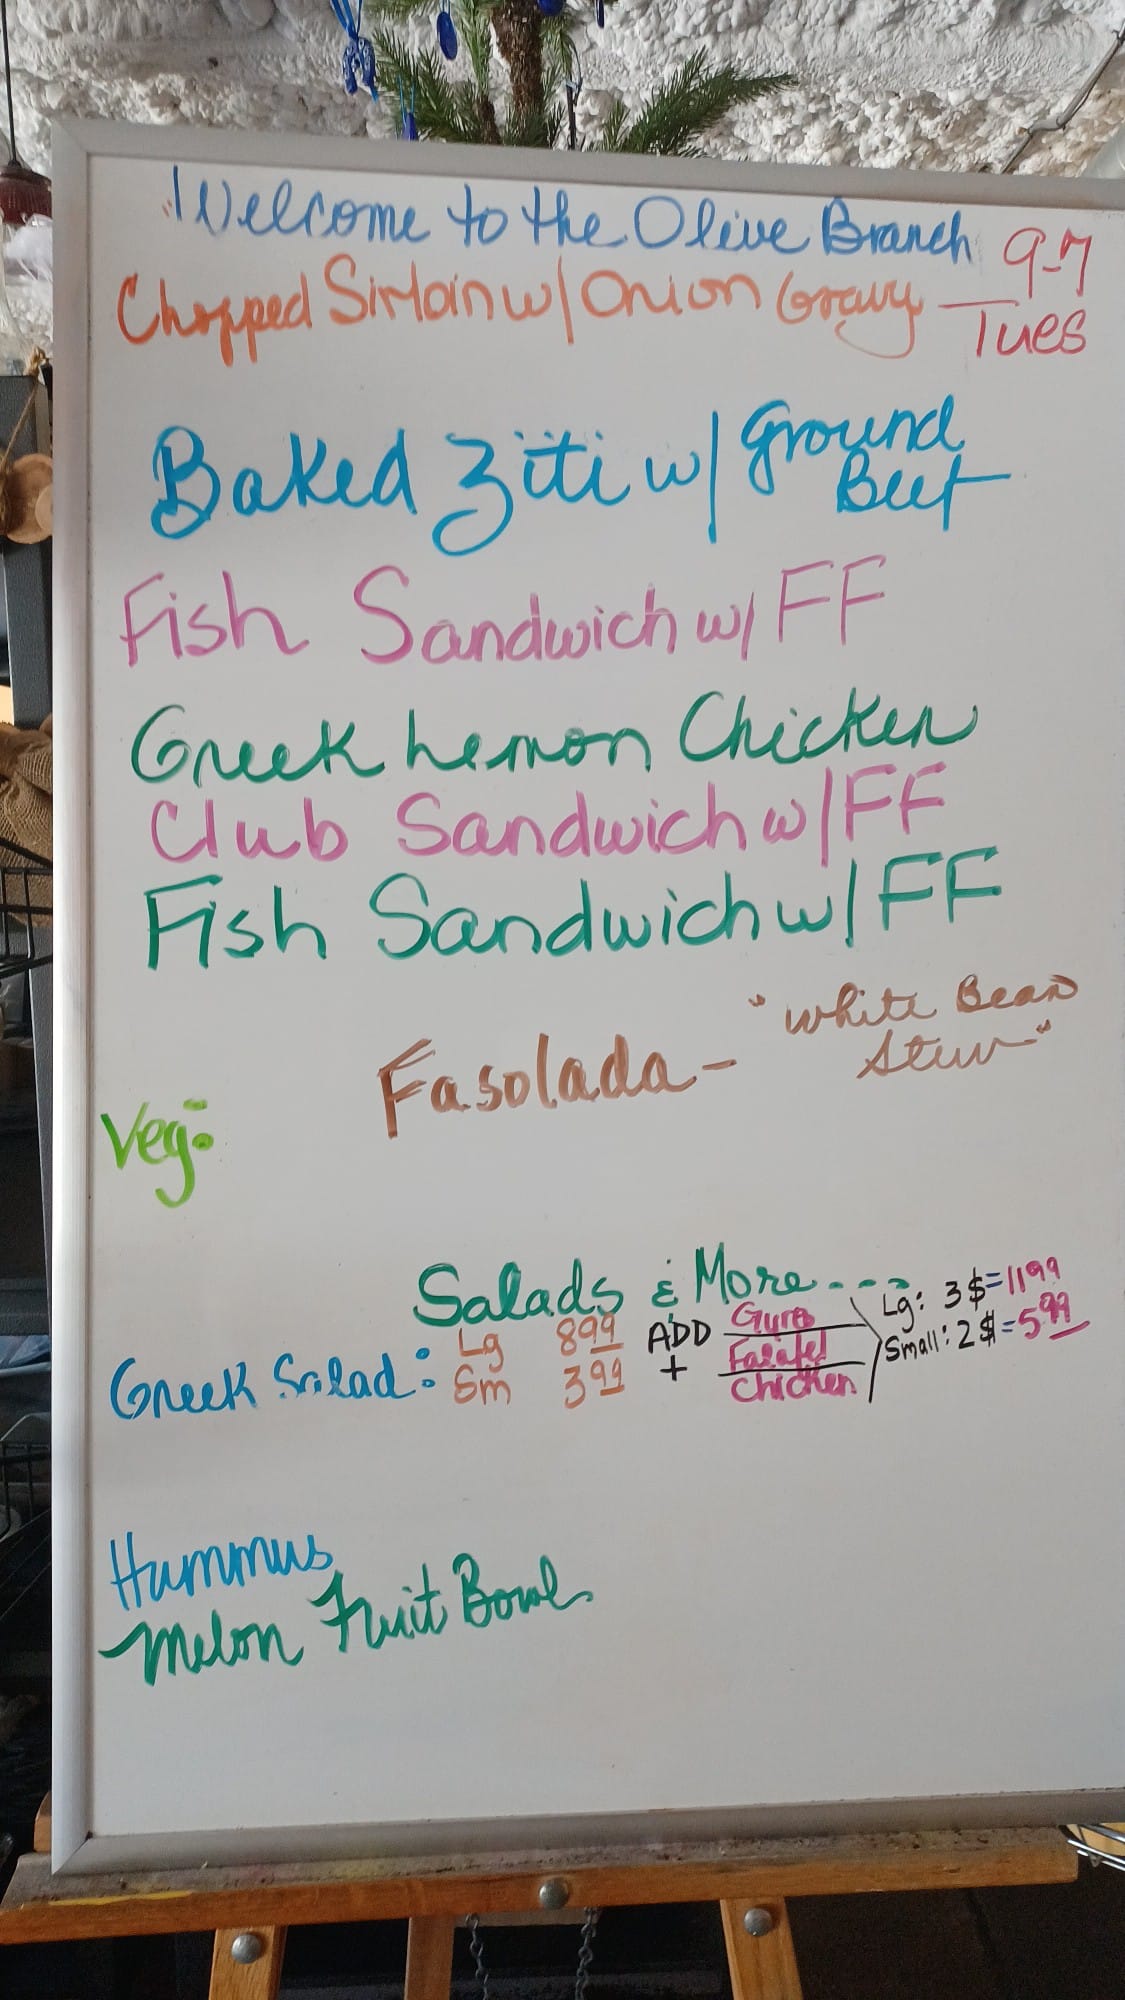 Welcome to the Olive Branch
9-7
Tues
Chopped Sirloin w/ Onion Gravy
Baked Ziti w/ Ground
Beef
Fish Sandwich w/ FF
Greek Lemon Chicken
Club Sandwich w/ FF
Fish Sandwich w/ FF
Fasolada - "White Bean
Stew"
Veg:
Salads & More - - -
Greek Salad:
Lg 8.99
Sm 3.99
ADD
+
Gyro
Falafel
Chicken
Lg: 3$ = 11.99
Small: 2$ = 5.99
Hummus
Melon Fruit Bowl